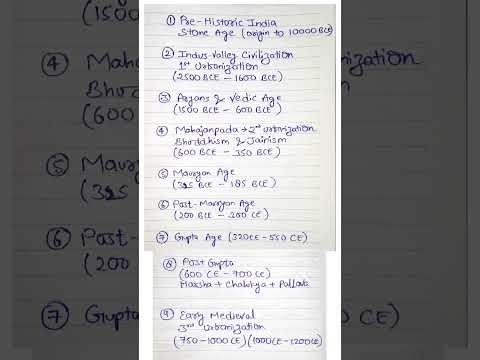 ① Pre-Historic India
Stone Age (origin to 10000 BCE)
② Indus Valley Civilization
1st Urbanization
(2500 BCE - 1600 BCE)
③ Aryans & Vedic Age
(1500 BCE - 600 BCE)
④ Mahajanpada → 2nd Urbanization
Bhoddhism & Jainism
(600 BCE - 350 BCE)
⑤ Mauryan Age
(325 BCE - 185 BCE)
⑥ Post-Mauryan Age
(200 BCE - 300 CE)
⑦ Gupta Age (320CE - 550 CE)
⑧ Post Gupta
(600 CE - 700 CE)
Harsha + Chalukya + Pallava
⑨ Early Medieval
3rd Urbanization
(750 - 1000 CE) (1000 CE - 1200 CE)